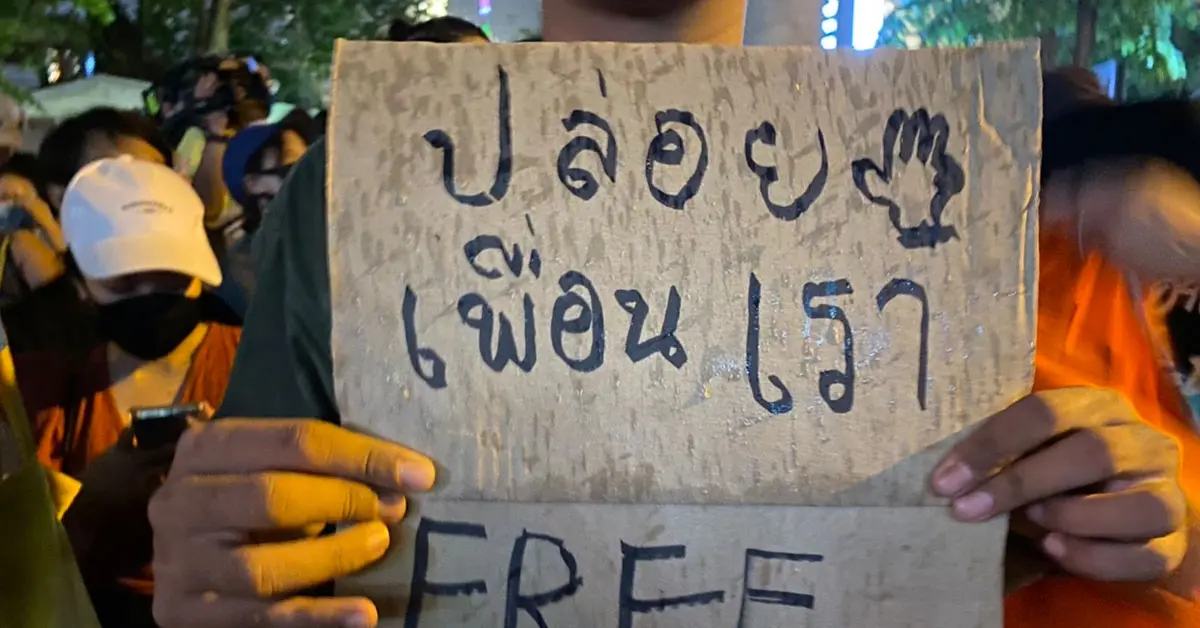 ปล่อย
เพื่อนเรา
FREE